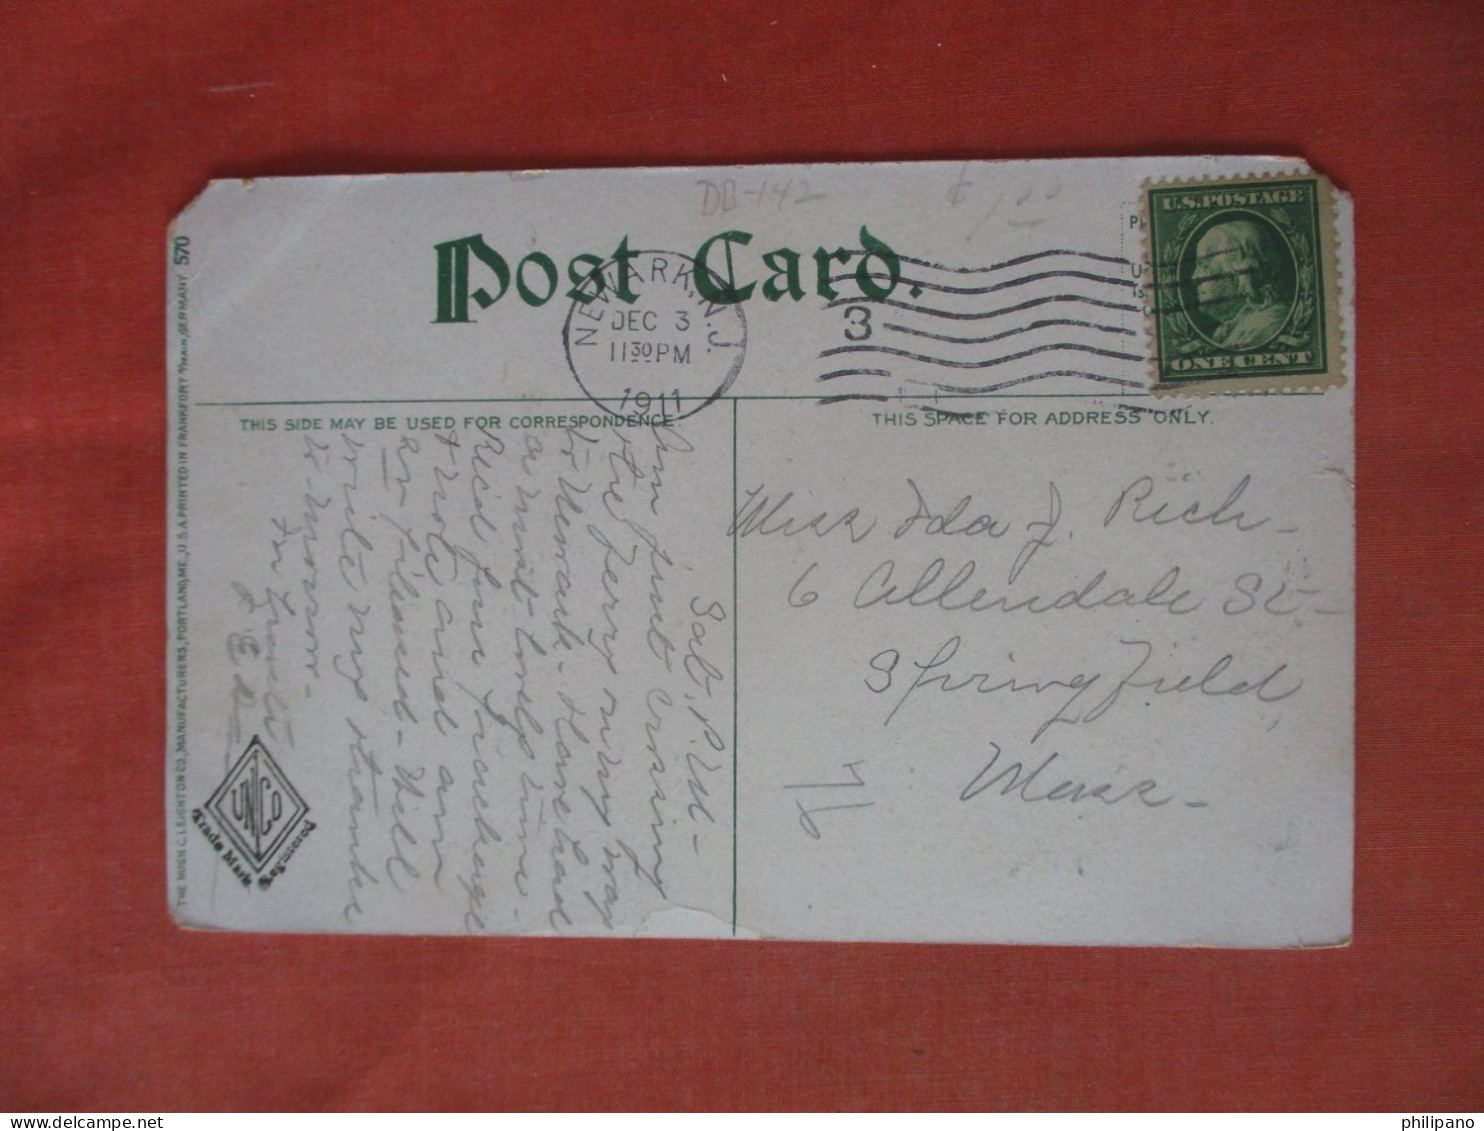 DB-142
$1.00
Post Card.
NEWARK, N.J.
DEC 3
11 30 PM
1911
3
U.S. POSTAGE
ONE CENT
THIS SIDE MAY BE USED FOR CORRESPONDENCE.
THIS SPACE FOR ADDRESS ONLY.
Sat. P.M -
Am just crossing
the ferry on my way
to Newark - Have had
a most lovely time -
Rec'd fine package
& note and am
so pleased - Will
write my
to-morrow -
Miss Ida J. Rich -
6 Allendale St -
Springfield,
Mass -
THE HUGH C. LEIGHTON CO., MANUFACTURERS, PORTLAND, ME., U.S.A. PRINTED IN FRANKFORT A/MAIN, GERMANY 570
UNCO
Trade Mark Registered
philipano